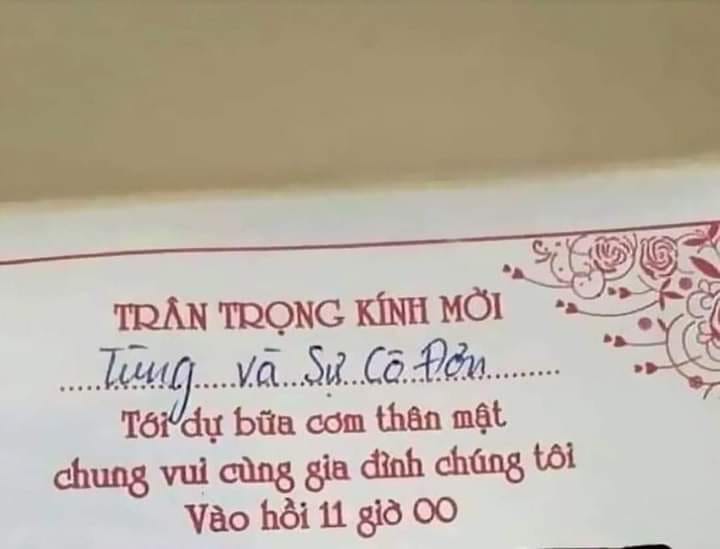 TRÂN TRỌNG KÍNH MỜI
Tùng và Sự Cô Đơn
Tới dự bữa cơm thân mật
chung vui cùng gia đình chúng tôi
Vào hồi 11 giờ 00